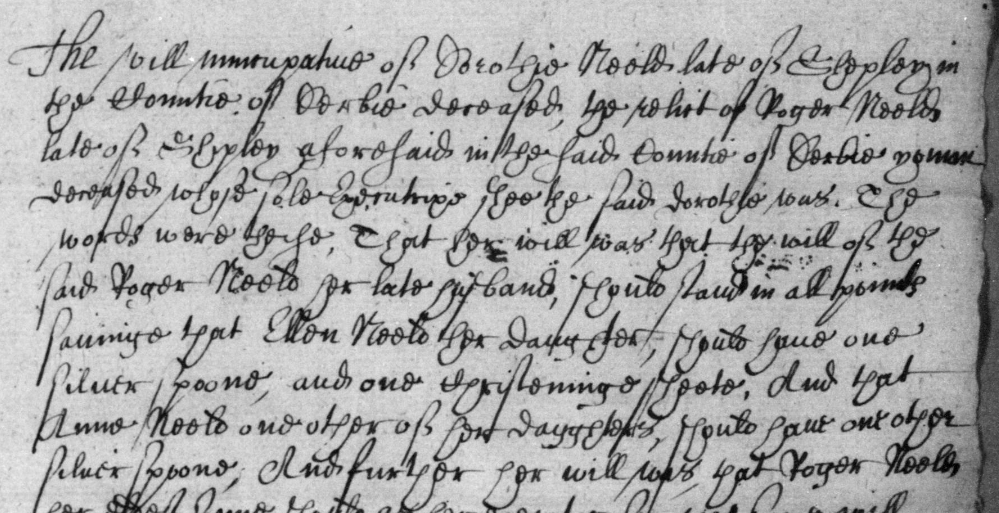 The will nuncupative of Dorothie Neeld late of Shepley in
the Countie of Derbie deceased, the relict of Roger Neeld
late of Shipley aforesaid in the said Countie of Derbie yoman
deceased whose sole Executrixe shee the said dorothie was. The
words were theise, That her will was that the will of the
said Roger Neeld her late husband, should stand in all points
savinge that Ellen Neeld her daughter, should have one
silver spoone, and one Christeninge sheete, And that
Anne Neeld one other of her daughters, should have one other
silver spoone, And further her will was, that Roger Neeld
her